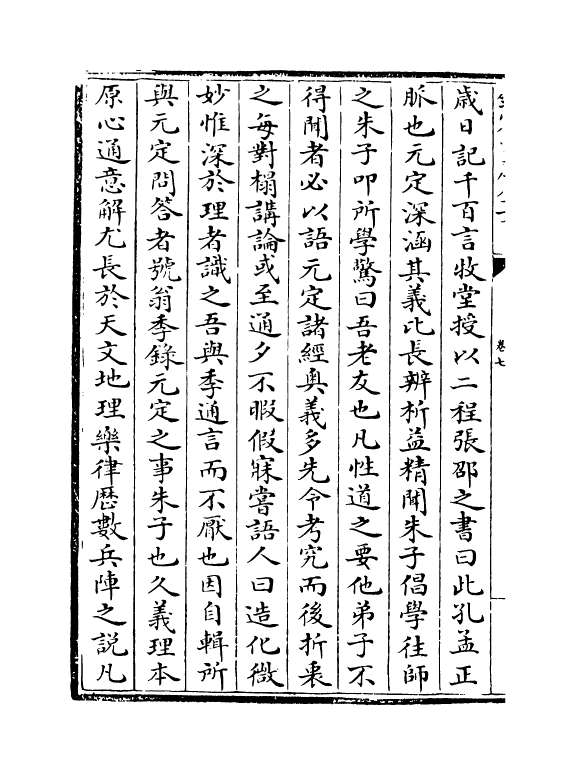 卷七
歳日記千百言牧堂授以二程張邵之書曰此孔孟正
脈也元定深涵其義比長辨析益精聞朱子倡學往師
之朱子叩所學驚曰吾老友也凡性道之要他弟子不
得聞者必以語元定諸經奥義多先令考究而後折衷
之毎對榻講論或至通夕不暇假寐嘗語人曰造化微
妙惟深於理者識之吾與季通言而不厭也因自輯所
與元定問答者號翁季錄元定之事朱子也久義理本
原心通意解尤長於天文地理樂律歴數兵陣之説凡